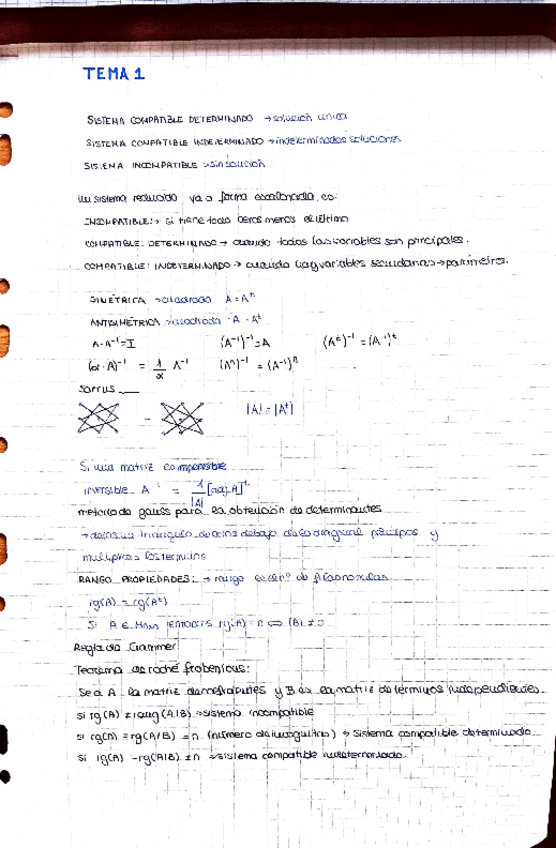 TEMA 1
SISTEMA COMPATIBLE DETERMINADO → solución única
SISTEMA COMPATIBLE INDETERMINADO → indeterminadas soluciones
SISTEMA INCOMPATIBLE → sin solución
un sistema reducido ya a forma escalonada, es:
INCOMPATIBLE: → si tiene todo ceros menos el último
COMPATIBLE: DETERMINADO → cuando todas las variables son principales.
COMPATIBLE: INDETERMINADO → cuando hay variables secundarias → parámetros.
SIMÉTRICA → cuadrada A = Aᵗ
ANTISIMÉTRICA → cuadrada -A = Aᵗ
A·A⁻¹ = I (A⁻¹)⁻¹ = A (Aᵗ)⁻¹ = (A⁻¹)ᵗ
(α·A)⁻¹ = 1/α A⁻¹ (Aⁿ)⁻¹ = (A⁻¹)ⁿ
Sarrus
- |A| = |Aᵗ|
Si una matriz es
inversible A⁻¹ = 1/|A| [adj A]ᵗ
método de gauss para la obtención de determinantes
→ un triangulo de ceros debajo de la diagonal y
multiplicas los terminos
RANGO PROPIEDADES: → rango es el nº de filas no nulas
rg(A) = rg(Aᵗ)
Si A ∈ entonces rg(A) = n ⇔ |A| ≠ 0
Regla de Crammer
Teorema de roché frobenious:
Sea A la matriz de coeficientes y B es la matriz de términos independientes
si rg(A) ≠ rg(A|B) → sistema incompatible
si rg(A) = rg(A|B) = n (número de incognitas) → Sistema compatible determinado
si rg(A) = rg(A|B) ≠ n → sistema compatible indeterminado.